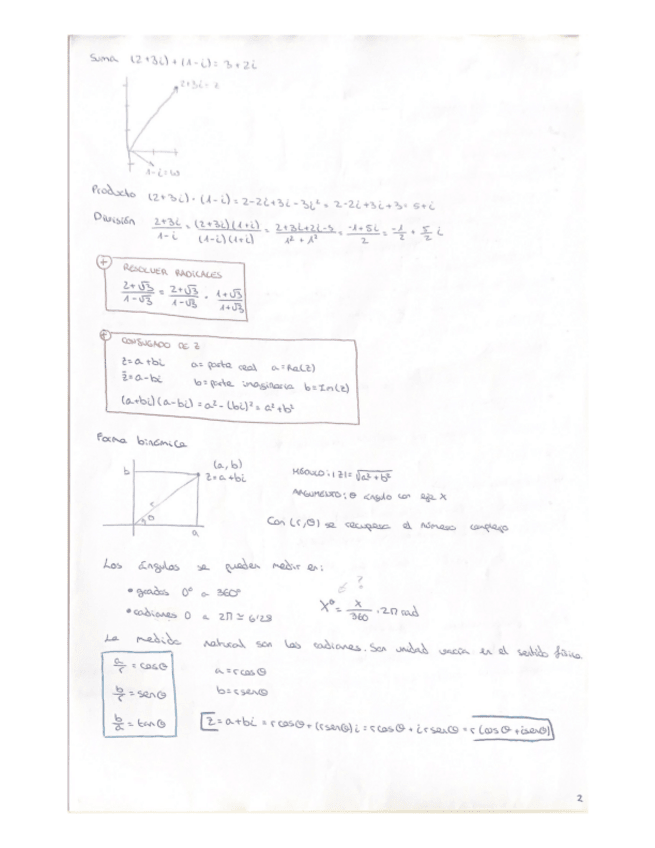 Suma (2+3i)+(1-i)=3+2i
2+3i=z
1-i=w
Producto (2+3i)·(1-i)=2-2i+3i-3i²=2-2i+3i+3=5+i
División 2+3i/1-i = (2+3i)(1+i)/(1-i)(1+i) = 2+3i+2i-3/1²+1² = -1+5i/2 = -1/2 + 5/2 i
+ RESOLVER RADICALES
2+√3/1-√3 = 2+√3/1-√3 · 1+√3/1+√3
+ CONJUGADO DE Z
z=a+bi a=parte real a=Re(z)
z̄=a-bi b=parte imaginaria b=Im(z)
(a+bi)(a-bi)=a²-(bi)²=a²+b²
Forma binómica
b (a,b)
z=a+bi
r
θ
a
MÓDULO: |z|=√a²+b²
ARGUMENTO: θ ángulo con eje X
Con (r,θ) se recupera el número complejo
Los ángulos se pueden medir en:
¿?
• grados 0° a 360°
• radianes 0 a 2π ≃ 6'28
X°= x/360 · 2π rad
La medida natural son los radianes. Son unidad vacía en el sentido físico.
a/r = cosθ a=rcosθ
b/r = senθ b=rsenθ
b/a = tanθ z=a+bi=rcosθ+(rsenθ)i=rcosθ+irsenθ=r(cosθ+isenθ)
2